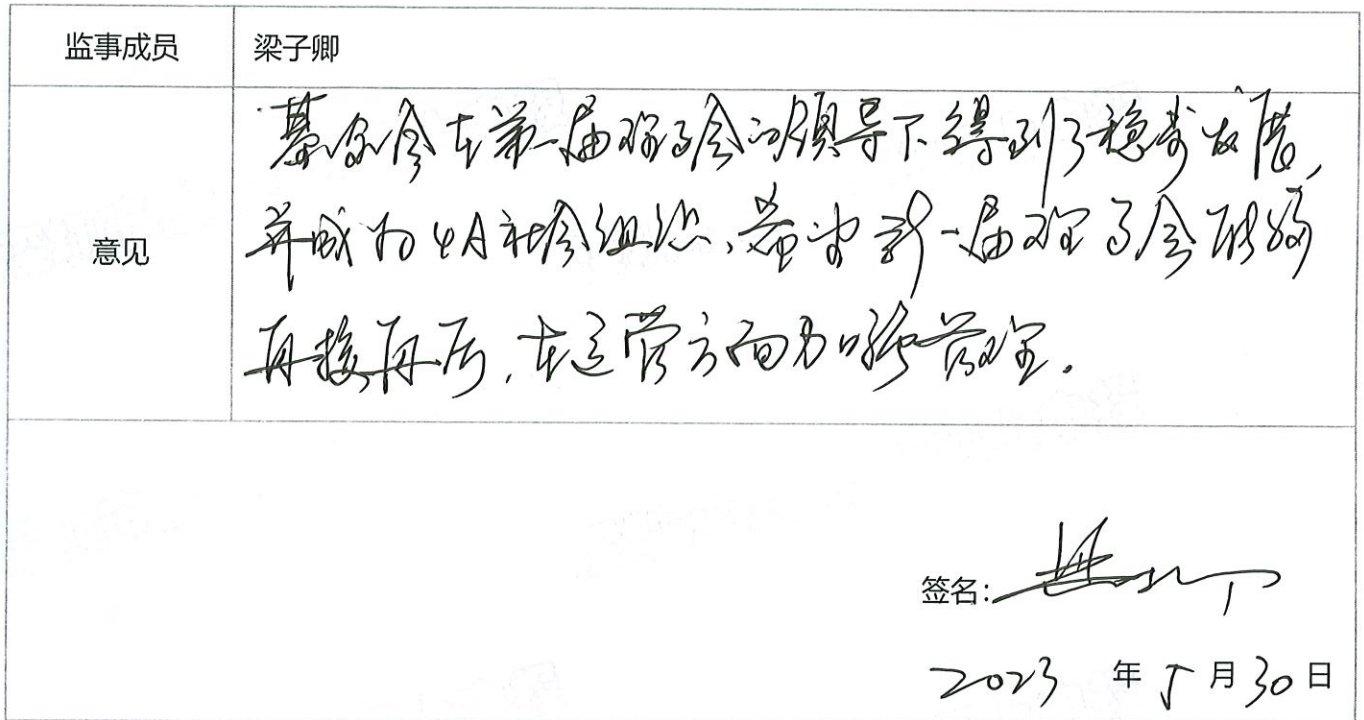 监事成员 梁子卿
意见
基金会在第一届理事会的领导下得到了稳步发展,
并成为4A社会组织,希望新一届理事会能够
再接再厉,在运营方面加强管理。
签名:
2023 年 5 月 30 日